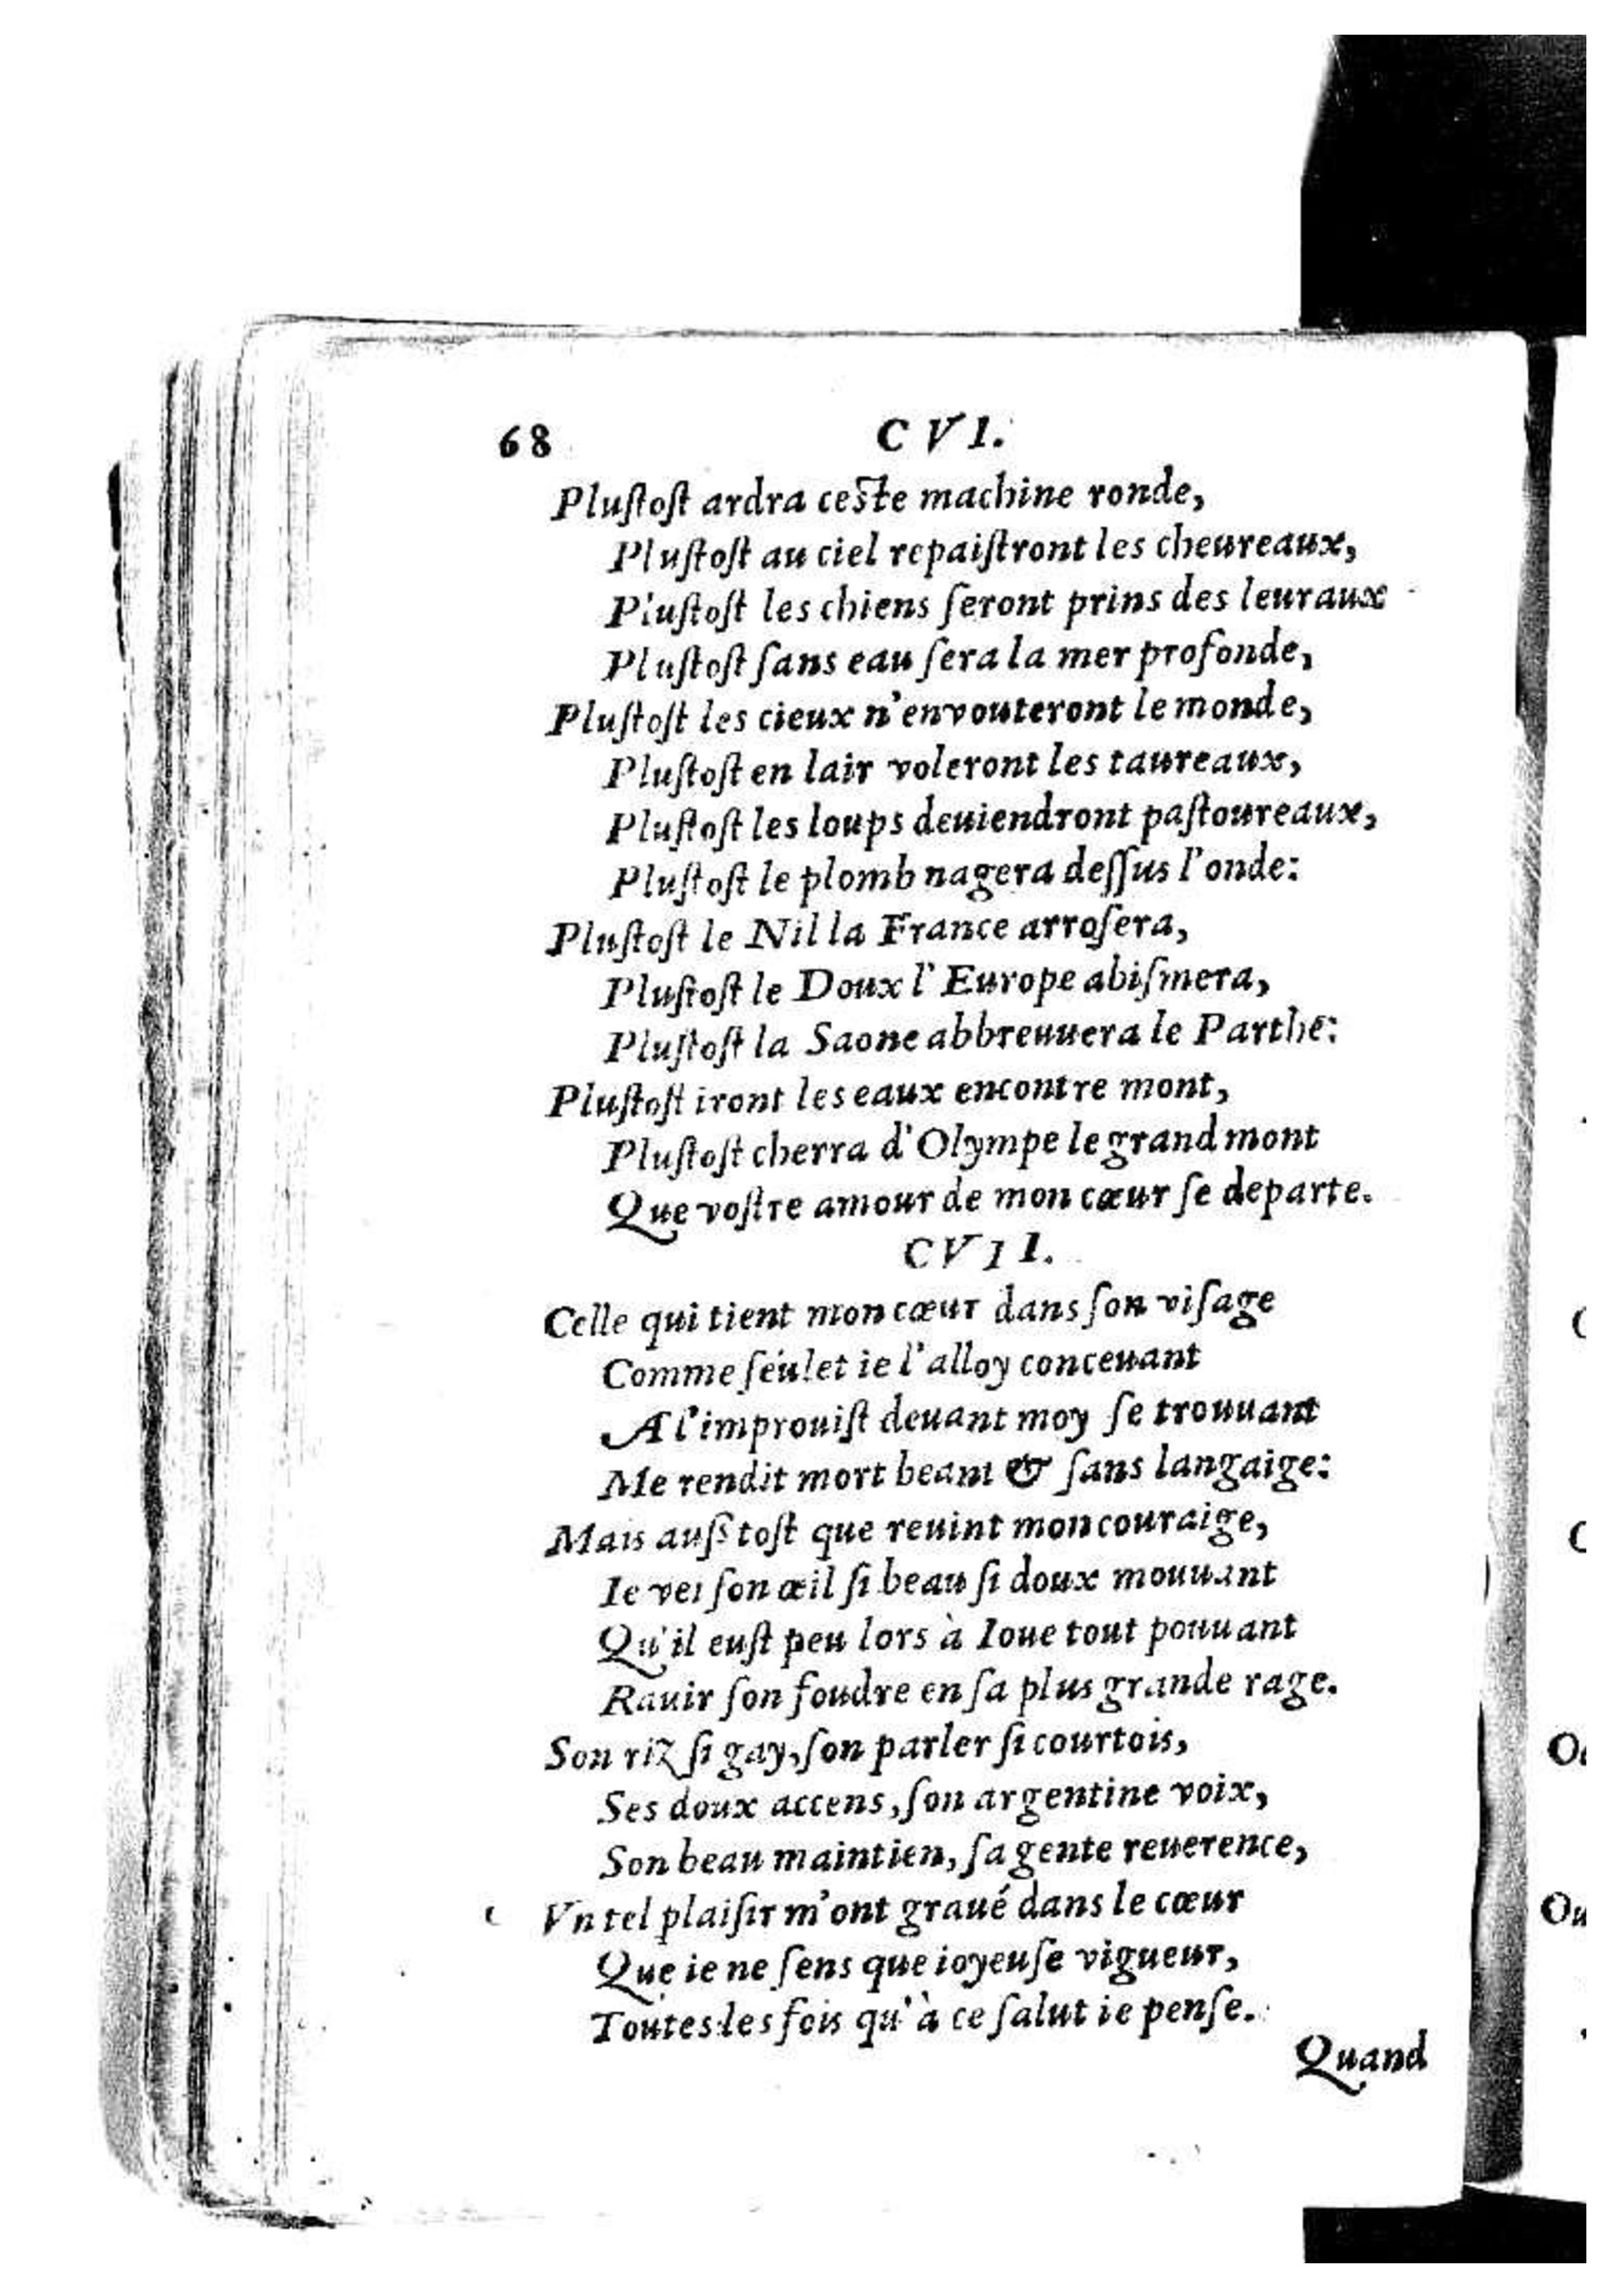 68 CVI.
Pluſtoſt ardra ceſte machine ronde,
Pluſtoſt au ciel repaiſtront les cheureaux,
Pluſtoſt les chiens ſeront prins des leuraux
Pluſtoſt ſans eau ſera la mer profonde,
Pluſtoſt les cieux n'envouteront le monde,
Pluſtoſt en lair voleront les taureaux,
Pluſtoſt les loups deuiendront paſtoureaux,
Pluſtoſt le plomb nagera deſſus l'onde:
Pluſtoſt le Nil la France arroſera,
Pluſtoſt le Doux l'Europe abiſmera,
Pluſtoſt la Saone abbreuuera le Parthe:
Pluſtoſt iront les eaux encontre mont,
Pluſtoſt cherra d'Olympe le grand mont
Que voſtre amour de mon cœur ſe departe.
CVII.
Celle qui tient mon cœur dans ſon viſage
Comme ſeulet ie l'alloy conceuant
A l'improuiſt deuant moy ſe trouuant
Me rendit mort beant & ſans langaige:
Mais auſſ toſt que reuint mon couraige,
Ie vei ſon œil ſi beau ſi doux mouuant
Qu'il euſt peu lors à Ioue tout pouuant
Rauir ſon foudre en ſa plus grande rage.
Son riz ſi gay, ſon parler ſi courtois,
Ses doux accens, ſon argentine voix,
Son beau maintien, ſa gente reuerence,
Vn tel plaiſir m'ont graué dans le cœur
Que ie ne ſens que ioyeuſe vigueur,
Toutes les fois qu'à ce ſalut ie penſe.
Quand